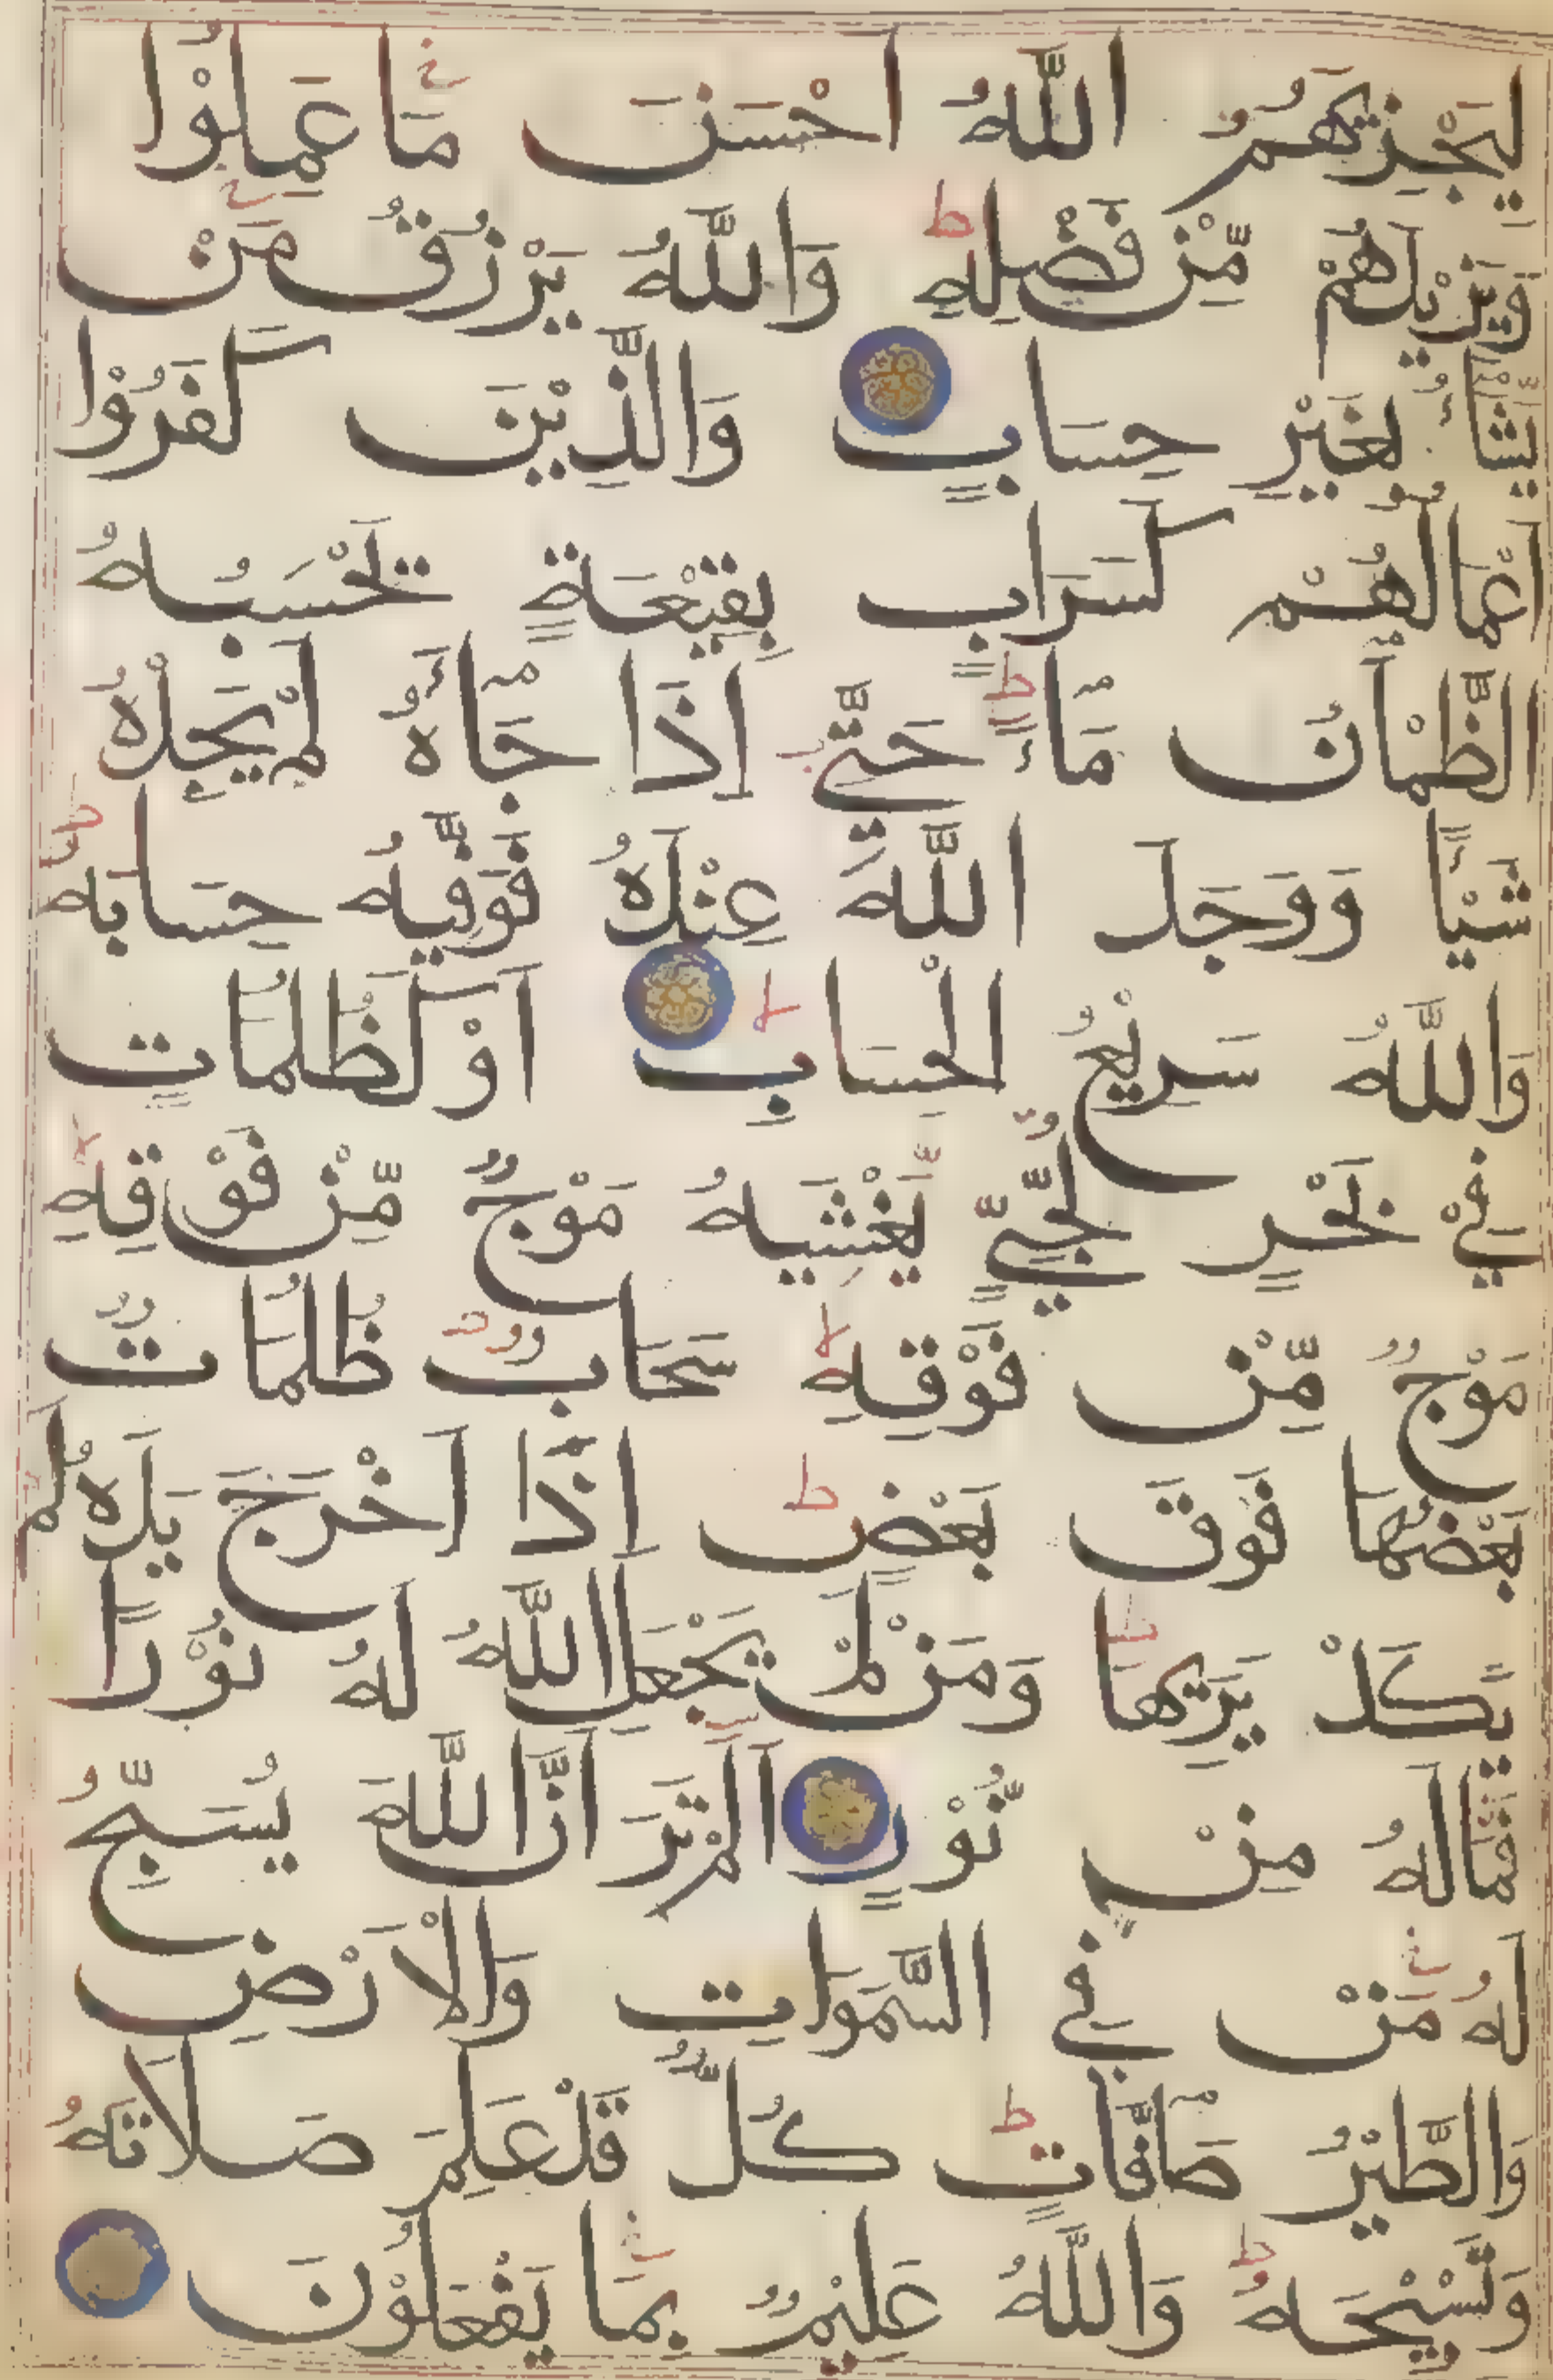 لِيَجْزِيَهُمُ اللّٰهُ اَحْسَنَ مَا عَمِلُوْا
وَيَزِيْدَهُمْ مِّنْ فَضْلِهٖ ط وَاللّٰهُ يَرْزُقُ مَنْ
يَّشَآءُ بِغَيْرِ حِسَابٍ وَالَّذِيْنَ كَفَرُوْا
اَعْمَالُهُمْ كَسَرَابٍ بِقِيْعَةٍ يَحْسَبُهُ
الظَّمْاٰنُ مَآءً ط حَتّٰى اِذَا جَآءَهُ لَمْ يَجِدْهُ
شَيْـًٔا وَوَجَدَ اللّٰهَ عِنْدَهُ فَوَفّٰيهُ حِسَابَهُ ط
وَاللّٰهُ سَرِيْعُ الْحِسَابِ لا اَوْ كَظُلُمَاتٍ
فِيْ بَحْرٍ لُّجِّيٍّ يَّغْشٰيهُ مَوْجٌ مِّنْ فَوْقِهٖ
مَوْجٌ مِّنْ فَوْقِهٖ سَحَابٌ ط ظُلُمَاتٌ
بَعْضُهَا فَوْقَ بَعْضٍ ط اِذَا اَخْرَجَ يَدَهُ لَمْ
يَكَدْ يَرٰىهَا ط وَمَنْ لَمْ يَجْعَلِ اللّٰهُ لَهُ نُوْرًا
فَمَا لَهُ مِنْ نُّوْرٍ اَلَمْ تَرَ اَنَّ اللّٰهَ يُسَبِّحُ
لَهُ مَنْ فِي السَّمٰوَاتِ وَالْاَرْضِ
وَالطَّيْرُ صَآفَّاتٍ ط كُلٌّ قَدْ عَلِمَ صَلَاتَهُ
وَتَسْبِيْحَهُ ط وَاللّٰهُ عَلِيْمٌ بِمَا يَفْعَلُوْنَ